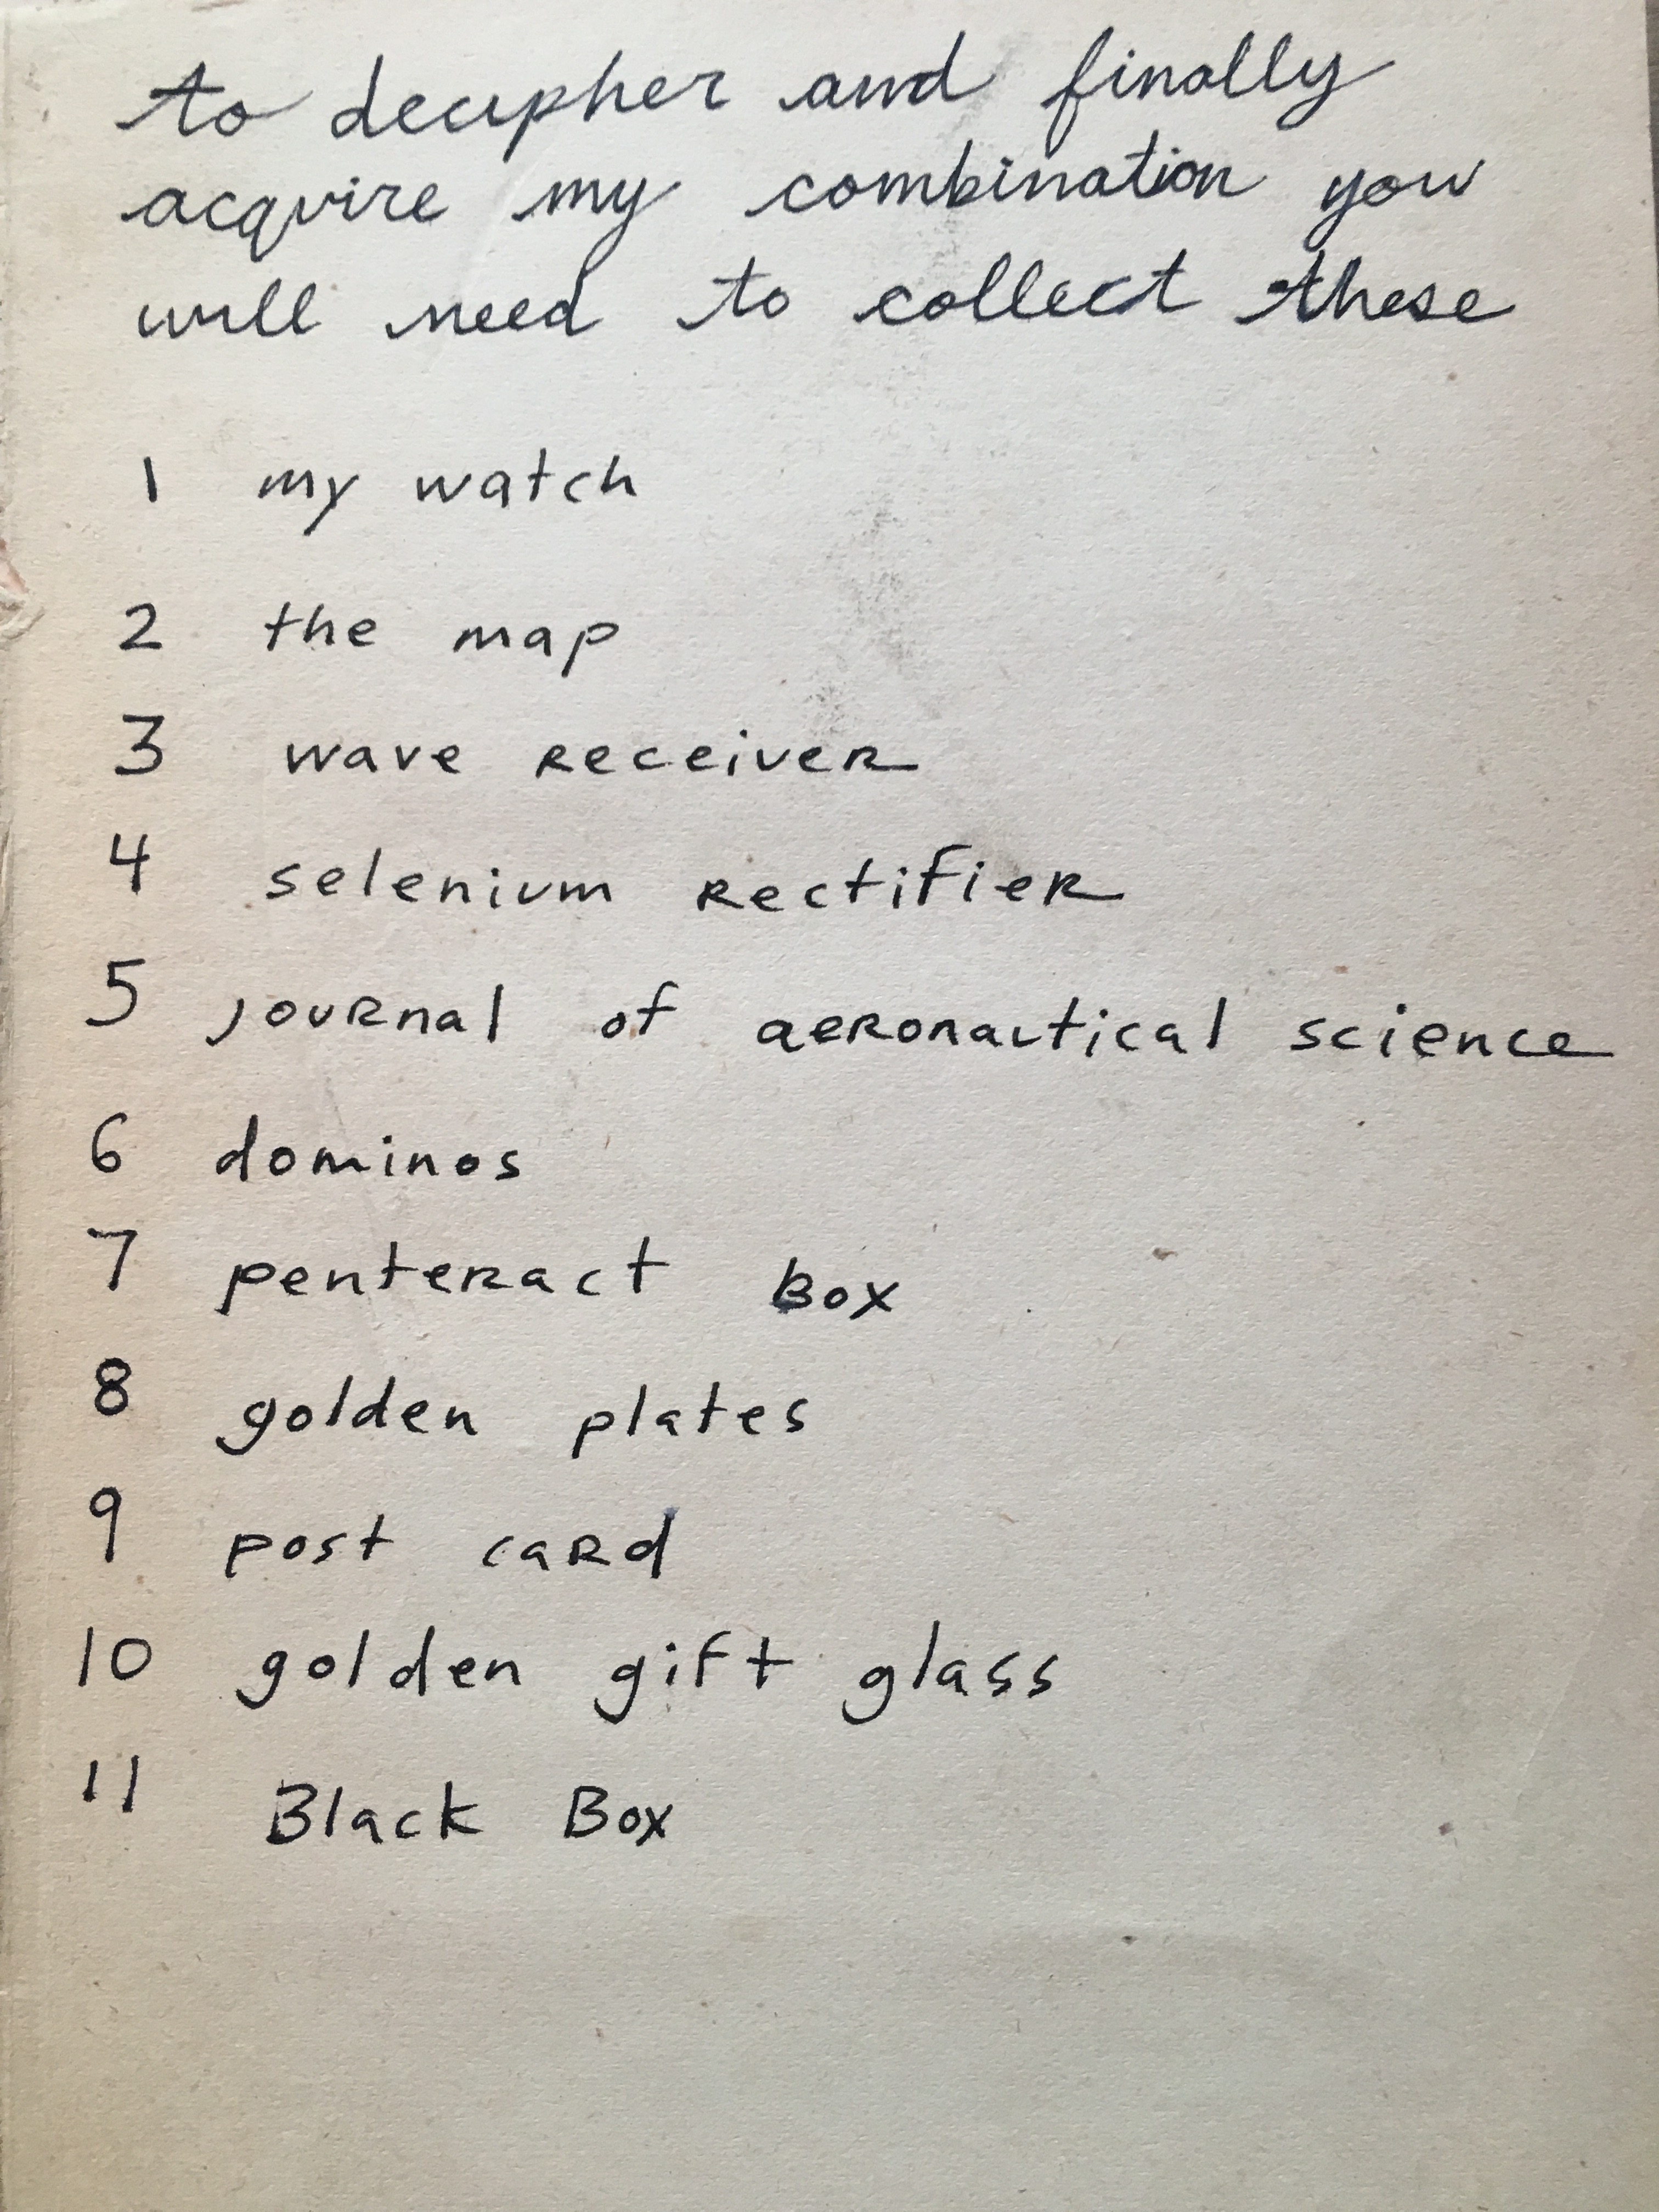 to decipher and finally
acquire my combination you
will need to collect these
1 my watch
2 the map
3 wave receiver
4 selenium rectifier
5 journal of aeronautical science
6 dominos
7 penteract Box
8 golden plates
9 post card
10 golden gift glass
11 Black Box